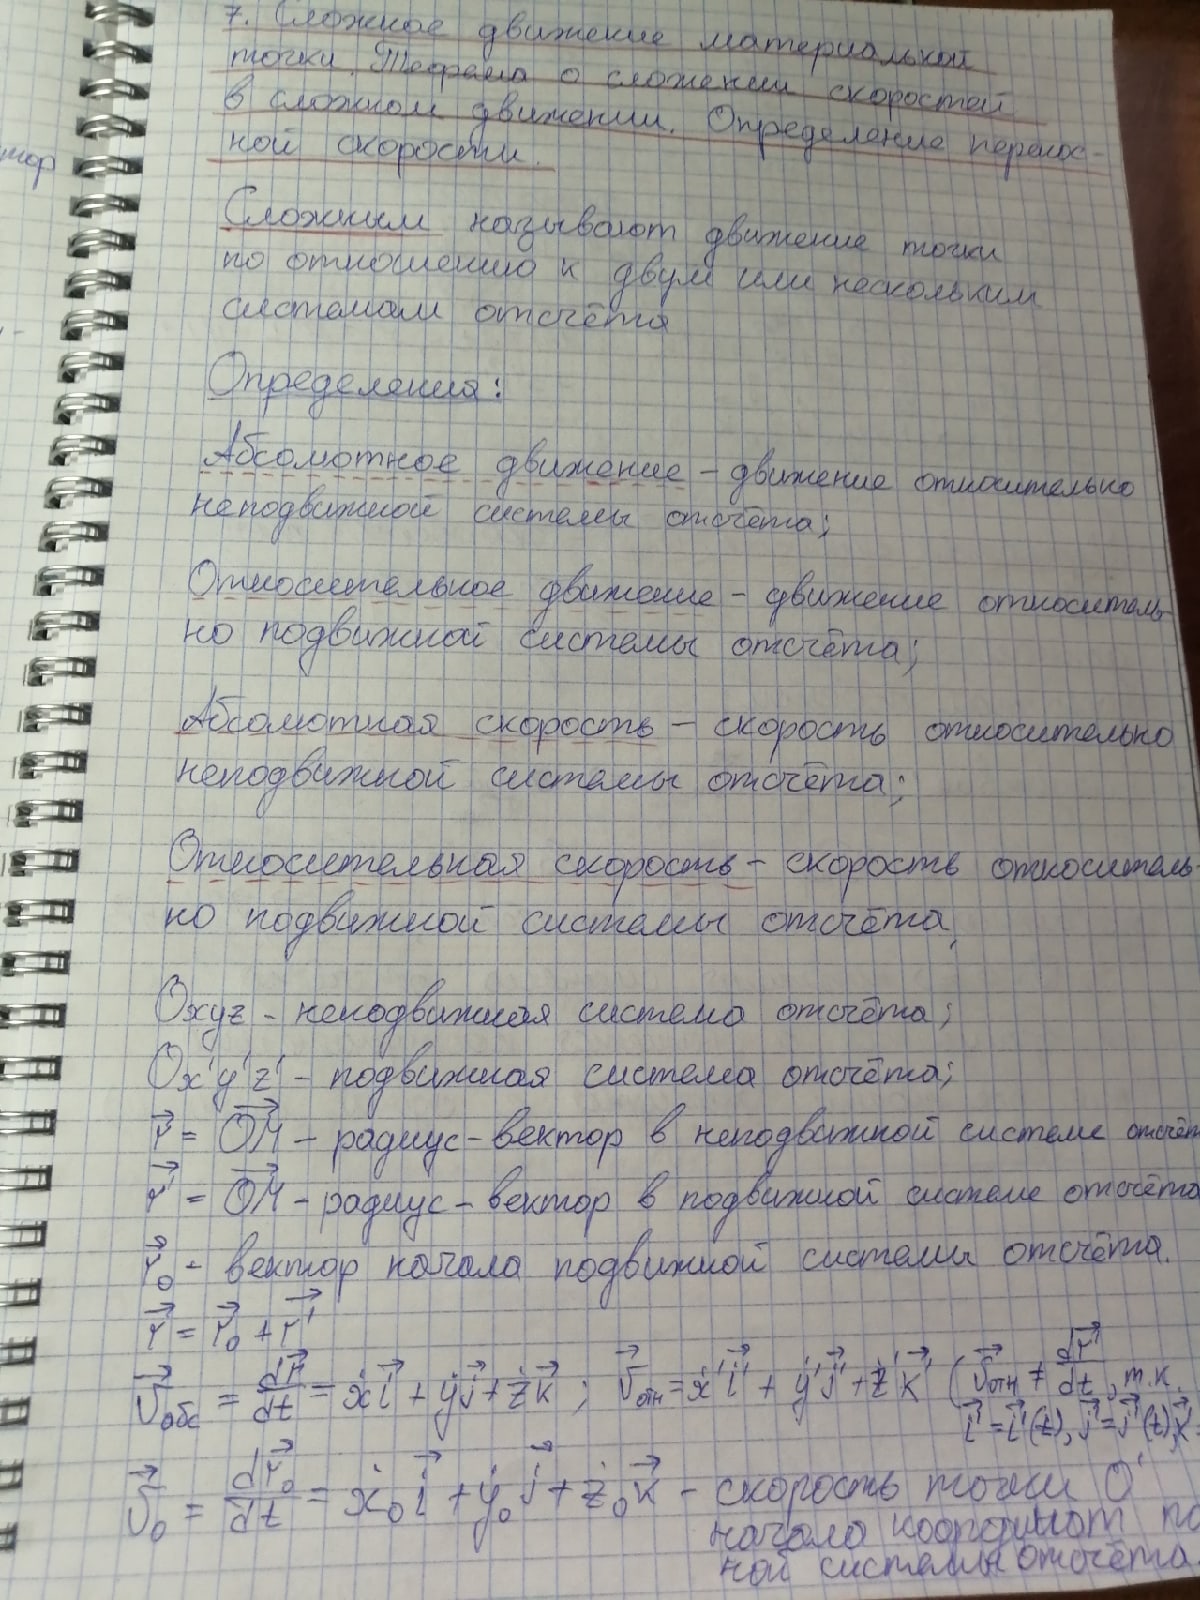 7. Сложное движение материальной
точки. Теорема о сложении скоростей
в сложном движении. Определение перенос-
ной скорости.
Сложным называют движение точки
по отношению к двум или нескольким
системам отсчёта
Определения:
Абсолютное движение – движение относительно
неподвижной системы отсчёта;
Относительное движение – движение относитель-
но подвижной системы отсчёта;
Абсолютная скорость – скорость относительно
неподвижной системы отсчёта;
Относительная скорость – скорость относитель-
но подвижной системы отсчёта,
Oxyz – неподвижная система отсчёта;
Ox'y'z' – подвижная система отсчёта;
r⃗ = OM⃗ – радиус-вектор в неподвижной системе отсчёт
r⃗' = OM⃗ – радиус-вектор в подвижной системе отсчёта
r⃗₀ – вектор начала подвижной системы отсчёта.
r⃗ = r⃗₀ + r⃗'
v⃗абс = dr⃗/dt = ẋi⃗ + ẏj⃗ + żk⃗ ; v⃗отн = ẋ'i⃗' + ẏ'j⃗' + ż'k⃗' (v⃗отн ≠ dr⃗'/dt, т.к.
i⃗' = i⃗'(t), j⃗' = j⃗'(t), k⃗' =
v⃗₀ = dr⃗₀/dt = ẋ₀i⃗ + ẏ₀j⃗ + ż₀k⃗ – скорость точки O'
начала координат по
ной системы отсчёта.